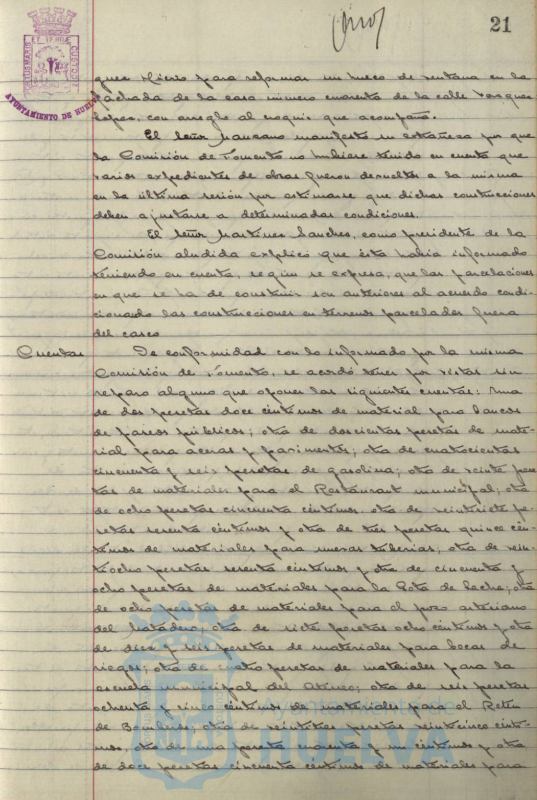 21
AYUNTAMIENTO DE HUELVA
para reformar un hueco de ventana en la
fachada de la casa número cuarenta de la calle Vazquez
Lopez, con arreglo al croquis que acompaña.
El Señor Manzano manifestó su extrañeza por que
la Comisión de Fomento no hubiese tenido en cuenta que
varios expedientes de obras fueron devueltos a la misma
en la última sesión por estimarse que dichas construcciones
deben ajustarse a determinadas condiciones.
El Señor Martinez Sanchez, como presidente de la
Comisión aludida explicó que ésta había informado
teniendo en cuenta, segun se expresa, que las parcelaciones
en que se ha de construir son anteriores al acuerdo condi-
cionando las construcciones en terrenos parcelados fuera
del casco
Cuentas De conformidad con lo informado por la misma
Comisión de Fomento, se acordó tener por vistas sin
reparo alguno que oponer las siguientes cuentas: Una
de dos pesetas doce céntimos de material para bancos
de paseos públicos; otra de doscientas pesetas de mate-
rial para aceras y pavimentos; otra de cuatrocientas
cincuenta y seis pesetas de gasolina; otra de veinte pese-
tas de materiales para el Restaurant municipal; otra
de ocho pesetas cincuenta céntimos, otra de veintisiete pe-
setas sesenta céntimos y otra de tres pesetas quince cén-
timos de materiales para nuevas tuberias; otra de vein-
tiocho pesetas sesenta céntimos y otra de cincuenta y
ocho pesetas de materiales para la Gota de Leche; otra
de ocho pesetas de materiales para el pozo artesiano
del Matadero; otra de siete pesetas ocho céntimos y otra
de diez y seis pesetas de materiales para bocas de
riegos; otra de cuatro pesetas de materiales para la
escuela municipal del Ateneo; otra de seis pesetas
ochenta y cinco céntimos de materiales para el Retén
de Bomberos; otra de veintitres pesetas veinticinco cénti-
mos, otra de una peseta cuarenta y un céntimos y otra
de doce pesetas cincuenta céntimos de materiales para